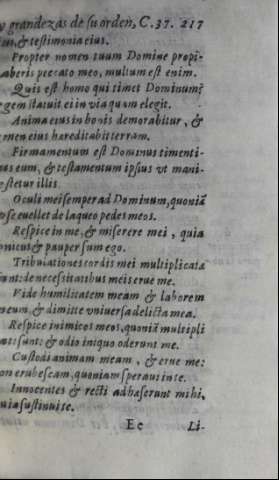 y grandezas de su orden, C. 37. 217
& testimonia eius.
Propter nomen tuum Domine propi-
aberis peccato meo, multum est enim.
Quis est homo qui timet Dominum?
gem statuit ei in via quam elegit.
Anima eius in bonis demorabitur, &
men eius hæreditabit terram.
Firmamentum est Dominus timenti-
us eum, & testamentum ipsius vt mani-
estetur illis.
Oculi mei semper ad Dominum, quoniã
pse euellet de laqueo pedes meos.
Respice in me, & miserere mei, quia
nicus & pauper sum ego.
Tribulationes cordis mei multiplicata
unt: de necesitatibus meis erue me.
Vide humilitatem meam & laborem
meum, & dimitte vniuersa delicta mea.
Respice inimicos meos, quoniã multipli
ati sunt: & odio iniquo oderunt me.
Custodi animam meam, & erue me:
on erubescam, quoniam speraui in te.
Innocentes & recti adhaserunt mihi,
uia sustinui te.
Ee Li-